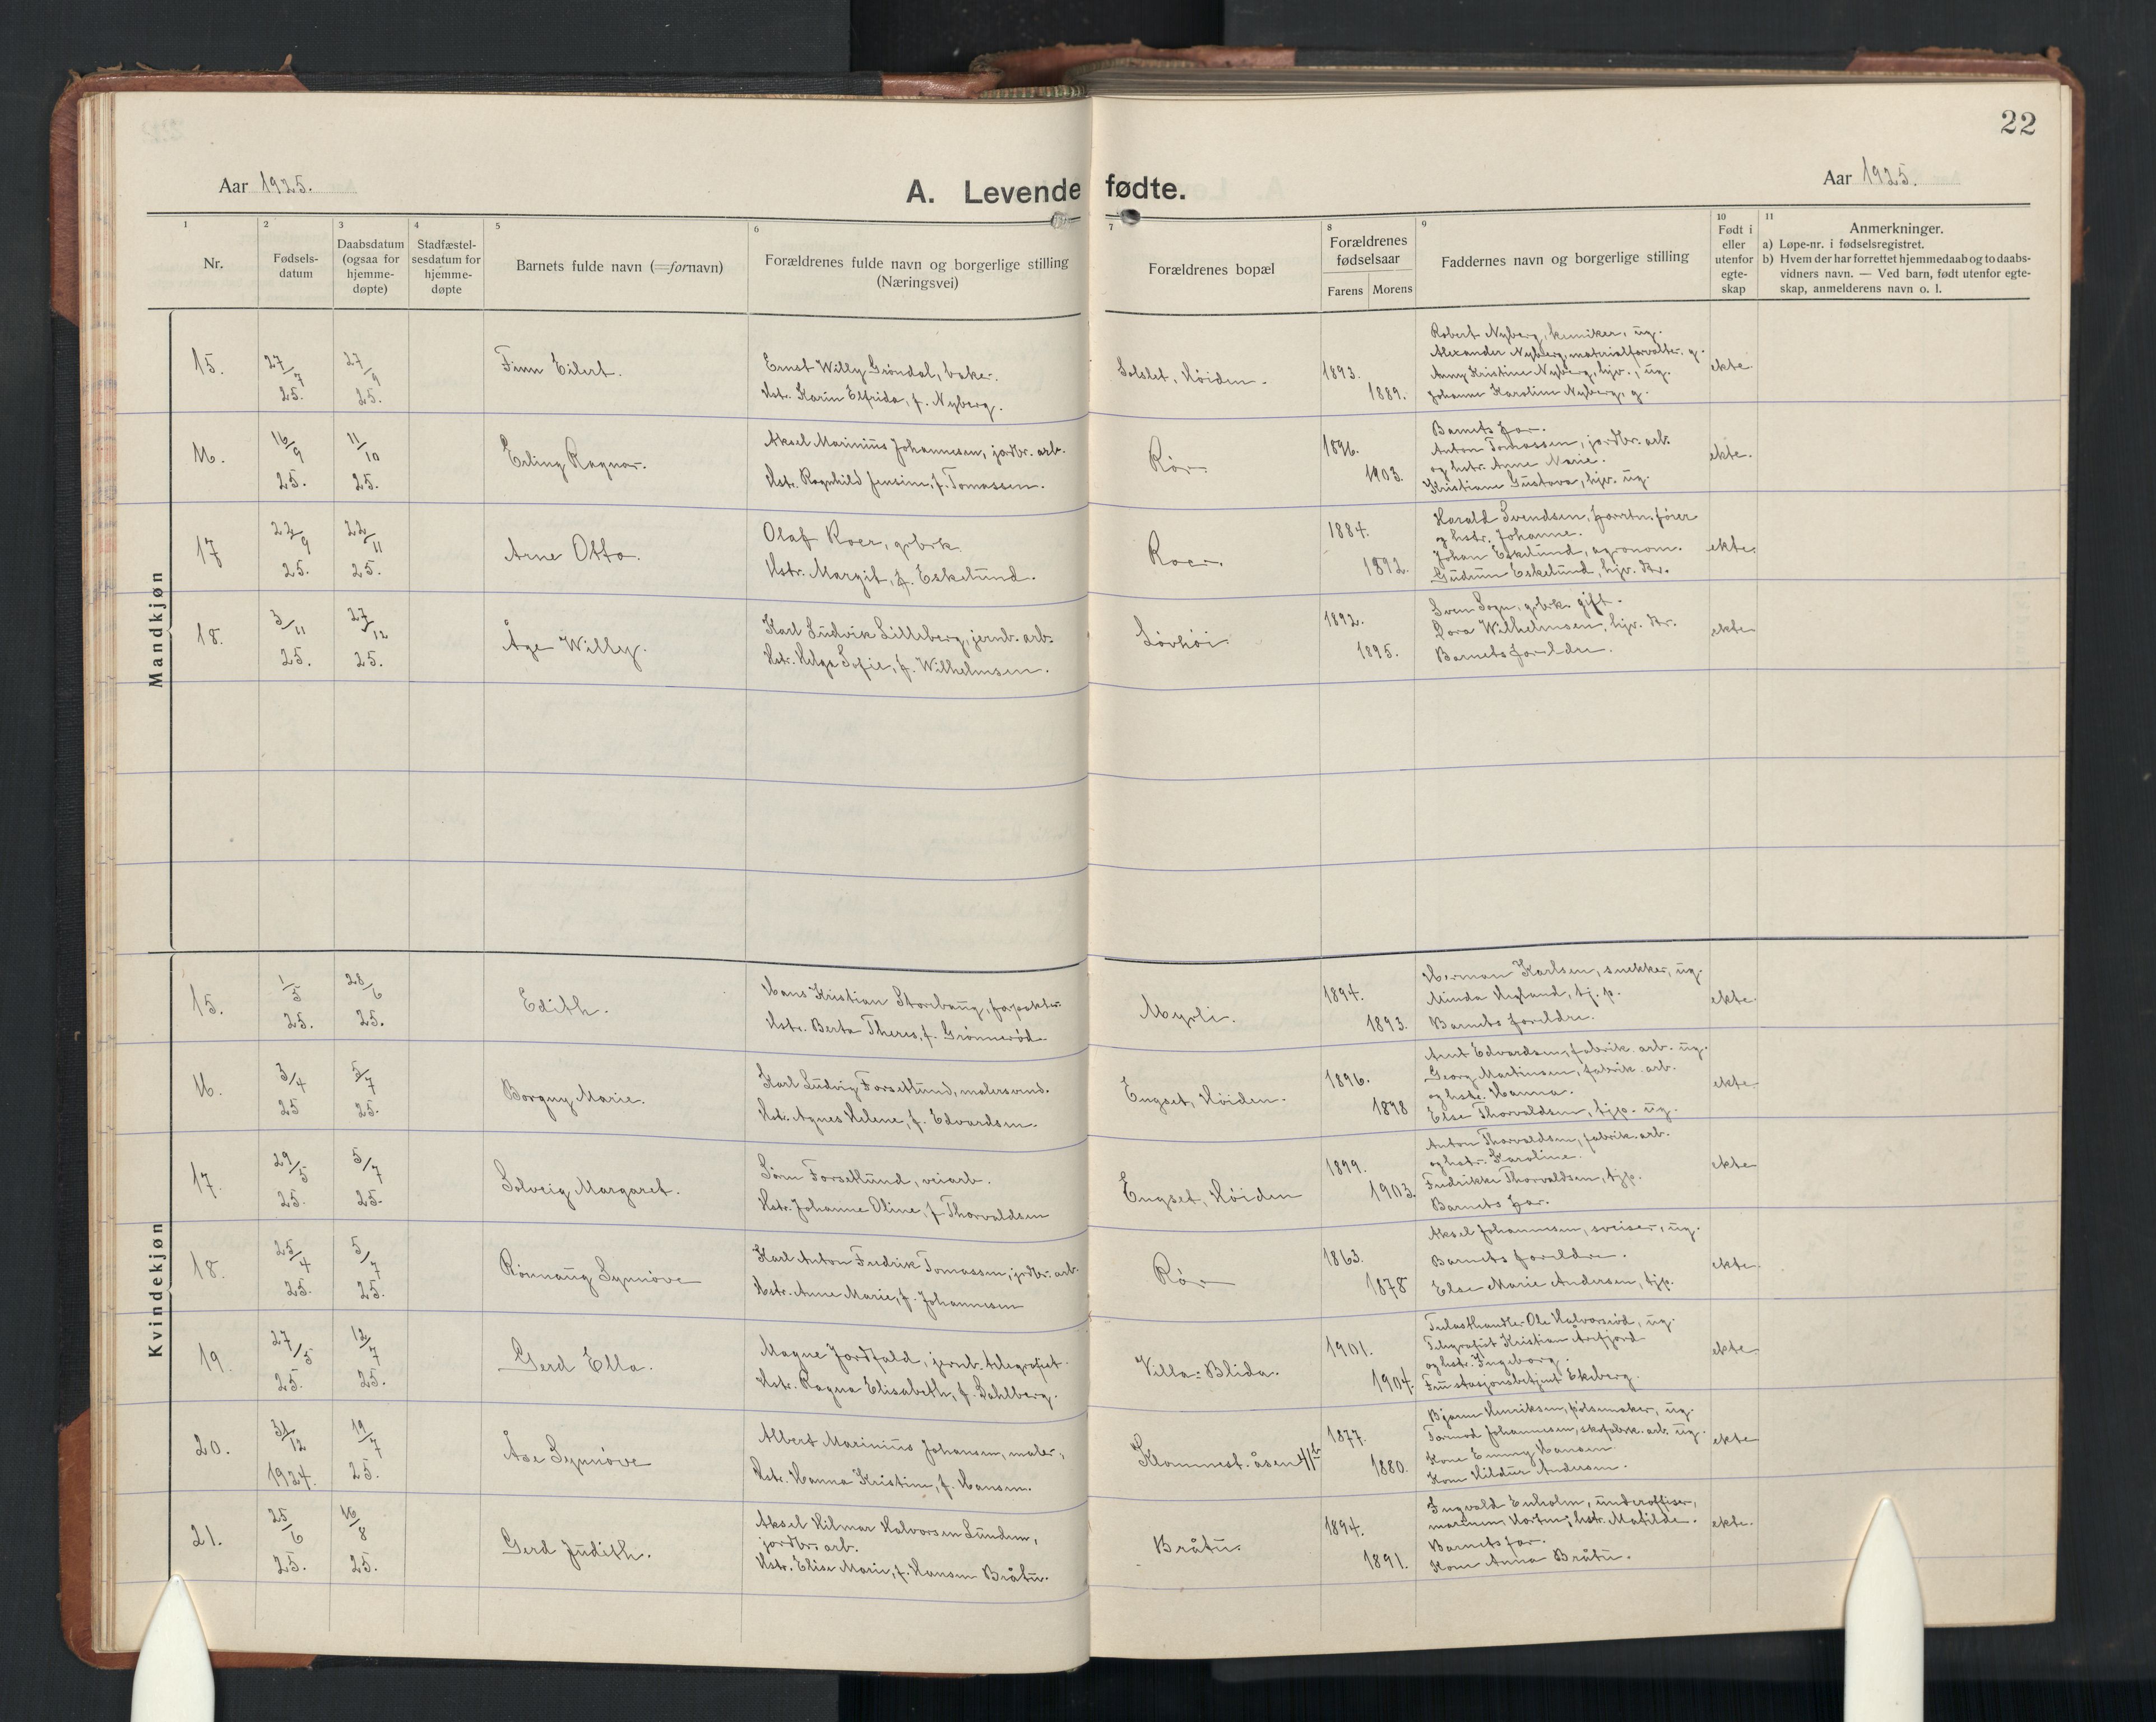 22
Aar 1925.
A. Levende fødte.
Aar 1925.
1 2 3 4 5 6 7 8 9 10 11
Nr.
Fødsels-
datum
Daabsdatum
(ogsaa for
hjemme-
døpte)
Stadfæstel-
sesdatum for
hjemme-
døpte
Barnets fulde navn (=fornavn)
Forældrenes fulde navn og borgerlige stilling
(Næringsvei)
Forældrenes bopæl
Forældrenes
fødselsaar
Farens Morens
Faddernes navn og borgerlige stilling
Født i
eller
utenfor
egte-
skap
Anmerkninger.
a) Løpe-nr. i fødselsregistret.
b) Hvem der har forrettet hjemmedaab og to daabs-
vidners navn. — Ved barn, født utenfor egte-
skap, anmelderens navn o. l.
Mandkjøn
15.
27/7
25.
27/9
25.
Finn Eilert.
Ernst Willy Gröndal, baker.
Hstr. Karin Elfrida, f. Nyberg.
Solslet, Höiden.
1893.
1889.
Robert Nyberg, kemiker, ug.
Alexander Nyberg, materialforvalter. g.
Anny Kristine Nyberg, hjv., ug.
Johanne Karoline Nyberg, g.
ekte.
16.
16/9
25.
11/10
25.
Erling Ragnar.
Aksel Marinius Johannesen, jordbr. arb.
Hstr. Ragnhild Jensine, f. Tomassen.
Rör.
1896.
1903.
Barnets far.
Anton Tomassen, jordbr. arb.
og hstr. Anne Marie.
Kristiane Gustava, hjv. ug.
ekte.
17
22/9
25.
22/11
25.
Arne Otto.
Olaf Roer, grbrk.
Hstr. Margit, f. Eskelund.
Roer.
1884.
1892.
Harald Svendsen, forrtn. förer
og hstr. Johanne.
Johan Eskelund, agronom.
Gudrun Eskelund, hjv. dtr.
ekte.
18.
3/11
25.
27/12
25.
Åge Willy.
Karl Ludvik Lilleberg, jernb. arb.
Hstr. Helga Sofie, f. Wilhelmsen.
Lövhöi
1892.
1895.
Sven Sogn, grbrk. gift.
Dora Wilhelmsen, hjv. dtr.
Barnets foreldre.
ekte
Kvindekjøn
15.
1/5
25.
28/6
25.
Edith.
Hans Kristian Storebaug, forpakter.
Hstr. Berta Theres, f. Grönneröd.
Myrli.
1894.
1893.
Herman Karlsen, snekker, ug.
Minda Hegland, tj. p.
Barnets foreldre.
ekte.
16.
3/4
25
5/7
25.
Borgny Marie.
Karl Ludvig Forsetlund, malersvend.
Hstr. Agnes Helene, f. Edvardsen.
Engset, Höiden.
1896.
1898
Arnt Edvardsen, fabrik. arb. ug.
Georg Martinsen, fabrik. arb.
og hstr. Hanna.
Else Thorvaldsen, tjp. ug.
ekte.
17.
29/5
25.
5/7
25.
Solveig Margaret.
Sörn Forsetlund, veiarb.
Hstr. Johanne Oline, f. Thorvaldsen
Engset, Höiden
1899.
1903.
Anton Thorvaldsen, fabrik. arb.
og hstr. Karoline.
Fredrikke Thorvaldsen, tjp.
Barnets far.
ekte
18.
25/4
25.
5/7
25.
Rönnaug Synnöve
Karl Anton Fredrik Tomassen, jordbr. arb.
Hstr. Anne Marie, f. Johannesen
Rör
1863.
1878
Aksel Johannesen, sveiser, ug.
Barnets foreldre.
Else Marie Andersen, tjp.
ekte.
19.
27/5
25.
12/7
25.
Gerd Ella.
Magne Jordfald, jernb. telegrafist.
Hstr. Ragna Elisabeth, f. Dahlberg.
Villa: Blida.
1901.
1904.
Trelasthandler Ole Halvorsröd, ug.
Telegrafist Kristian Årefjord
og hstr. Ingeborg.
Fru stasjonsbetjent Ekeberg.
ekte
20.
31/12
1924.
19/7
25.
Åse Synnöve
Albert Marinius Johansen, maler,
Hstr. Hanna Kristine, f. Hansen.
Klommest. åsen 41b
1877.
1880.
Bjarne Henriksen, pölsemaker, ug.
Tormod Johannesen, skofabrk. arb. ug.
Kone Emmy Hansen
Kone Hildur Andersen.
ekte
21.
25/6
25.
16/8
25.
Gerd Judith.
Aksel Hilmar Halvorsen Lunden,
jordbr. arb.
Hstr. Elise Marie, f. Hansen Bråtu.
Bråtu.
1894.
1891.
Ingvald Enholm, underoffiser,
marinen Horten, hstr. Matilde.
Barnets far.
Kone Anna Bråtu.
ekte.